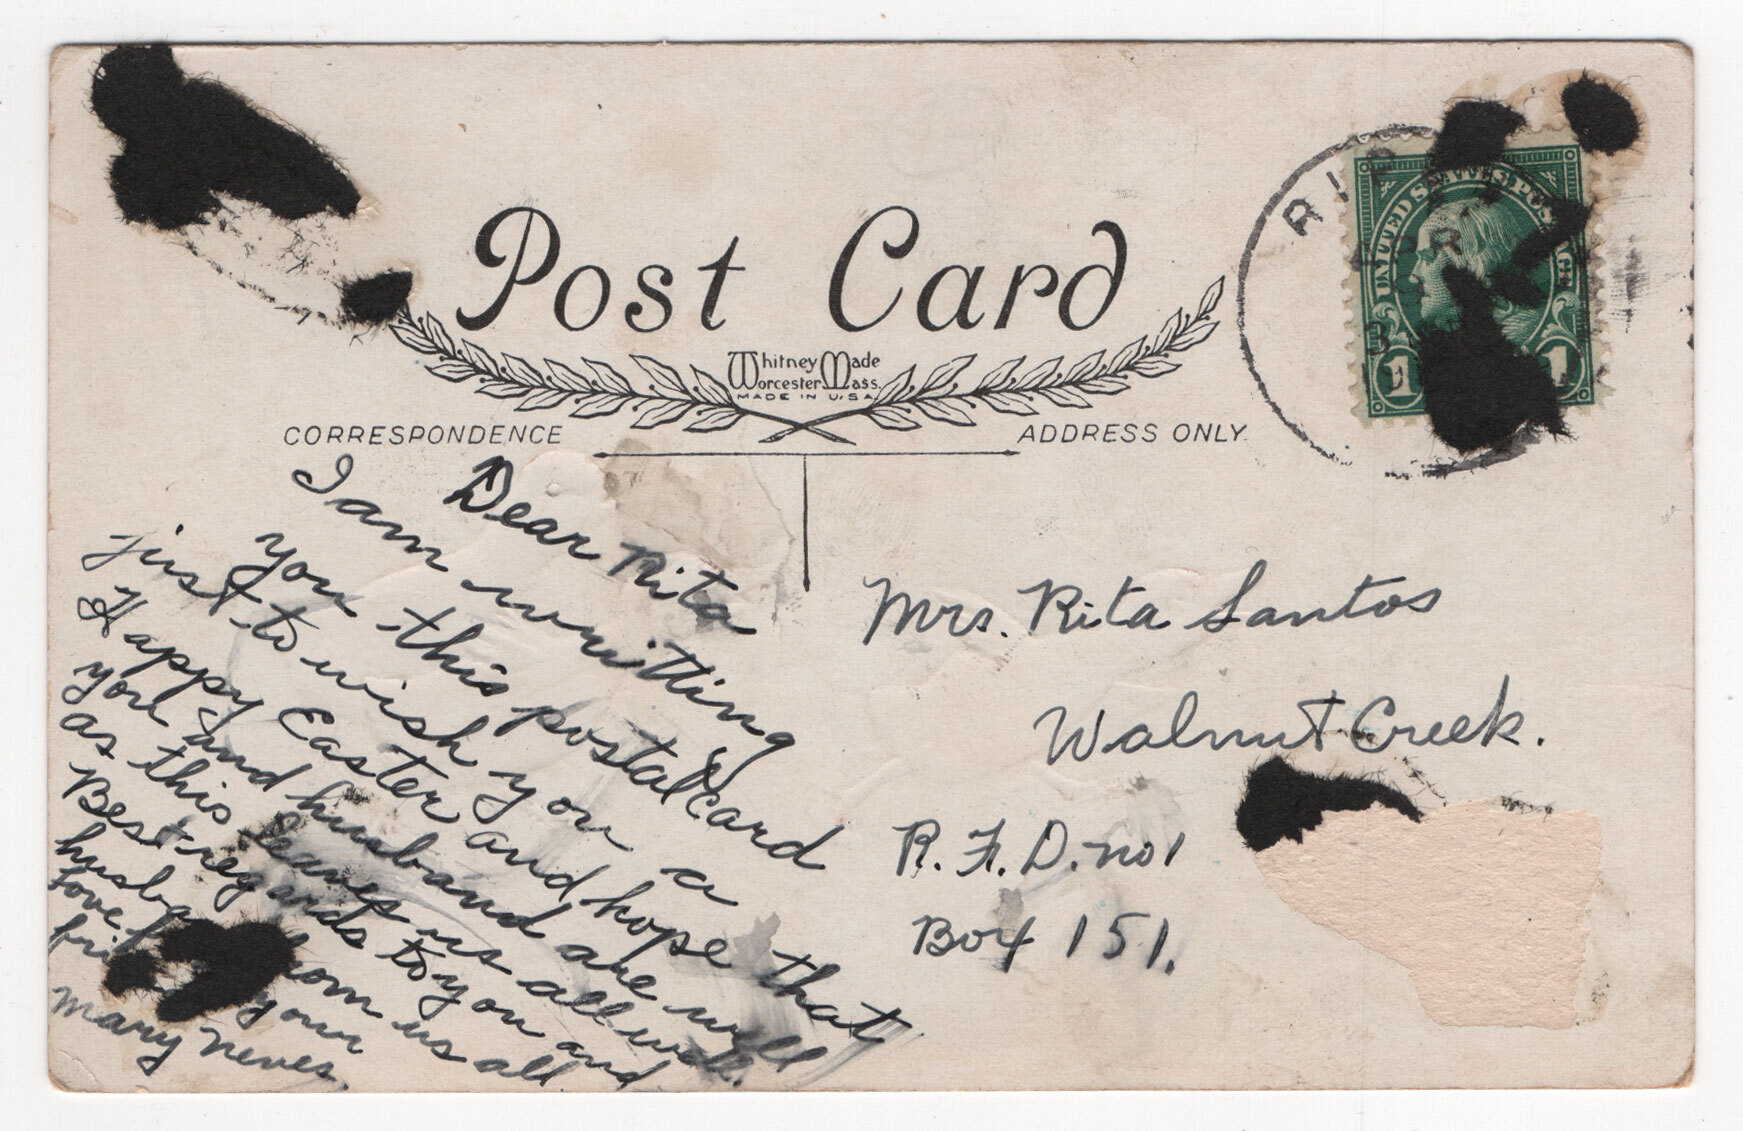 Post Card
Whitney Made
Worcester Mass.
MADE IN U.S.A.
CORRESPONDENCE
ADDRESS ONLY.
UNITED STATES POSTAGE
1 1
Dear Rita
I am writting
you this postalcard
just to wish you a
Happy Easter and hope that
you and husband are well
as this leaves us all well.
Best regards to you and
husband from us all
Love
your
Mary Neves.
Mrs. Rita Santos
Walnut Creek.
R. F. D. no 1
Box 151.